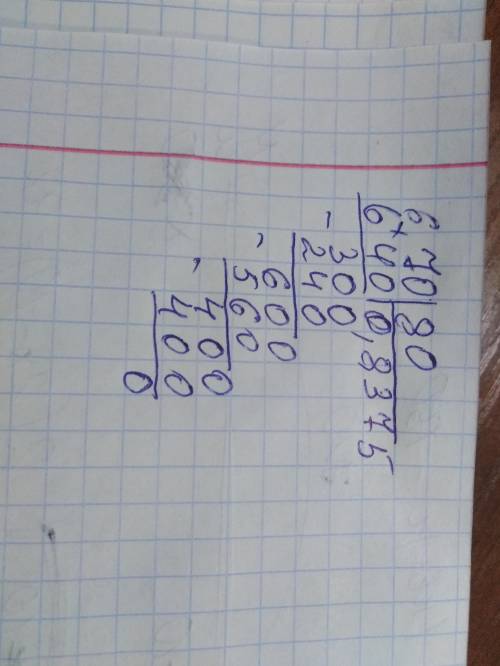 670|80
640|0,8375
- 300
240
- 600
560
- 400
400
0